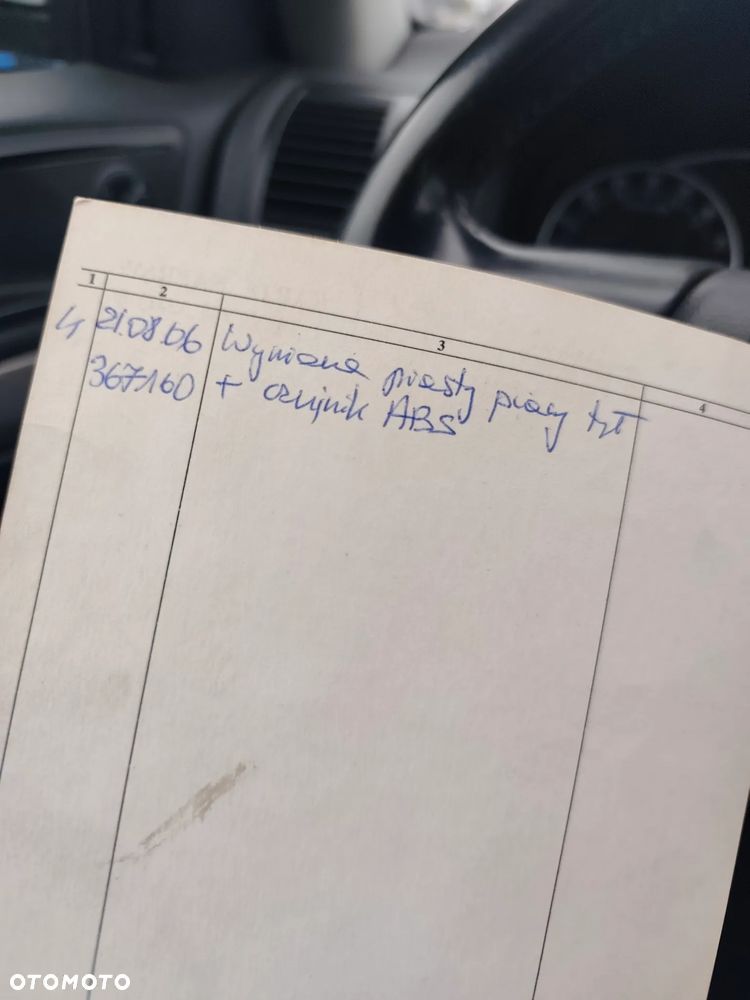 1 2 3 4
4 21.08.06 Wymiana piasty prawy tył
367160 + czujnik ABS
OTOMOTO